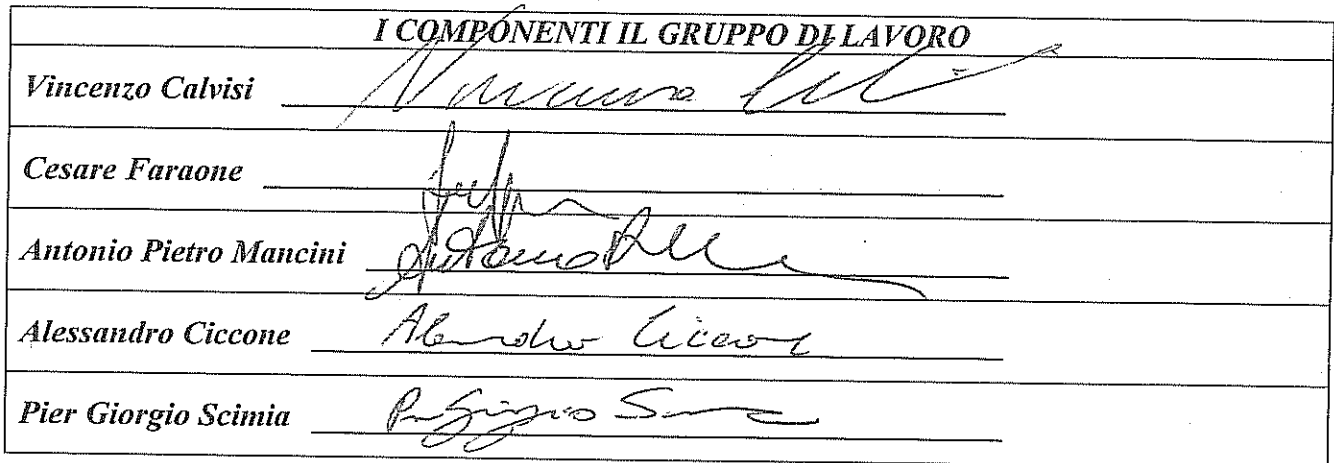 I COMPONENTI IL GRUPPO DI LAVORO
Vincenzo Calvisi
Cesare Faraone
Antonio Pietro Mancini
Alessandro Ciccone Alessandro Ciccone
Pier Giorgio Scimia